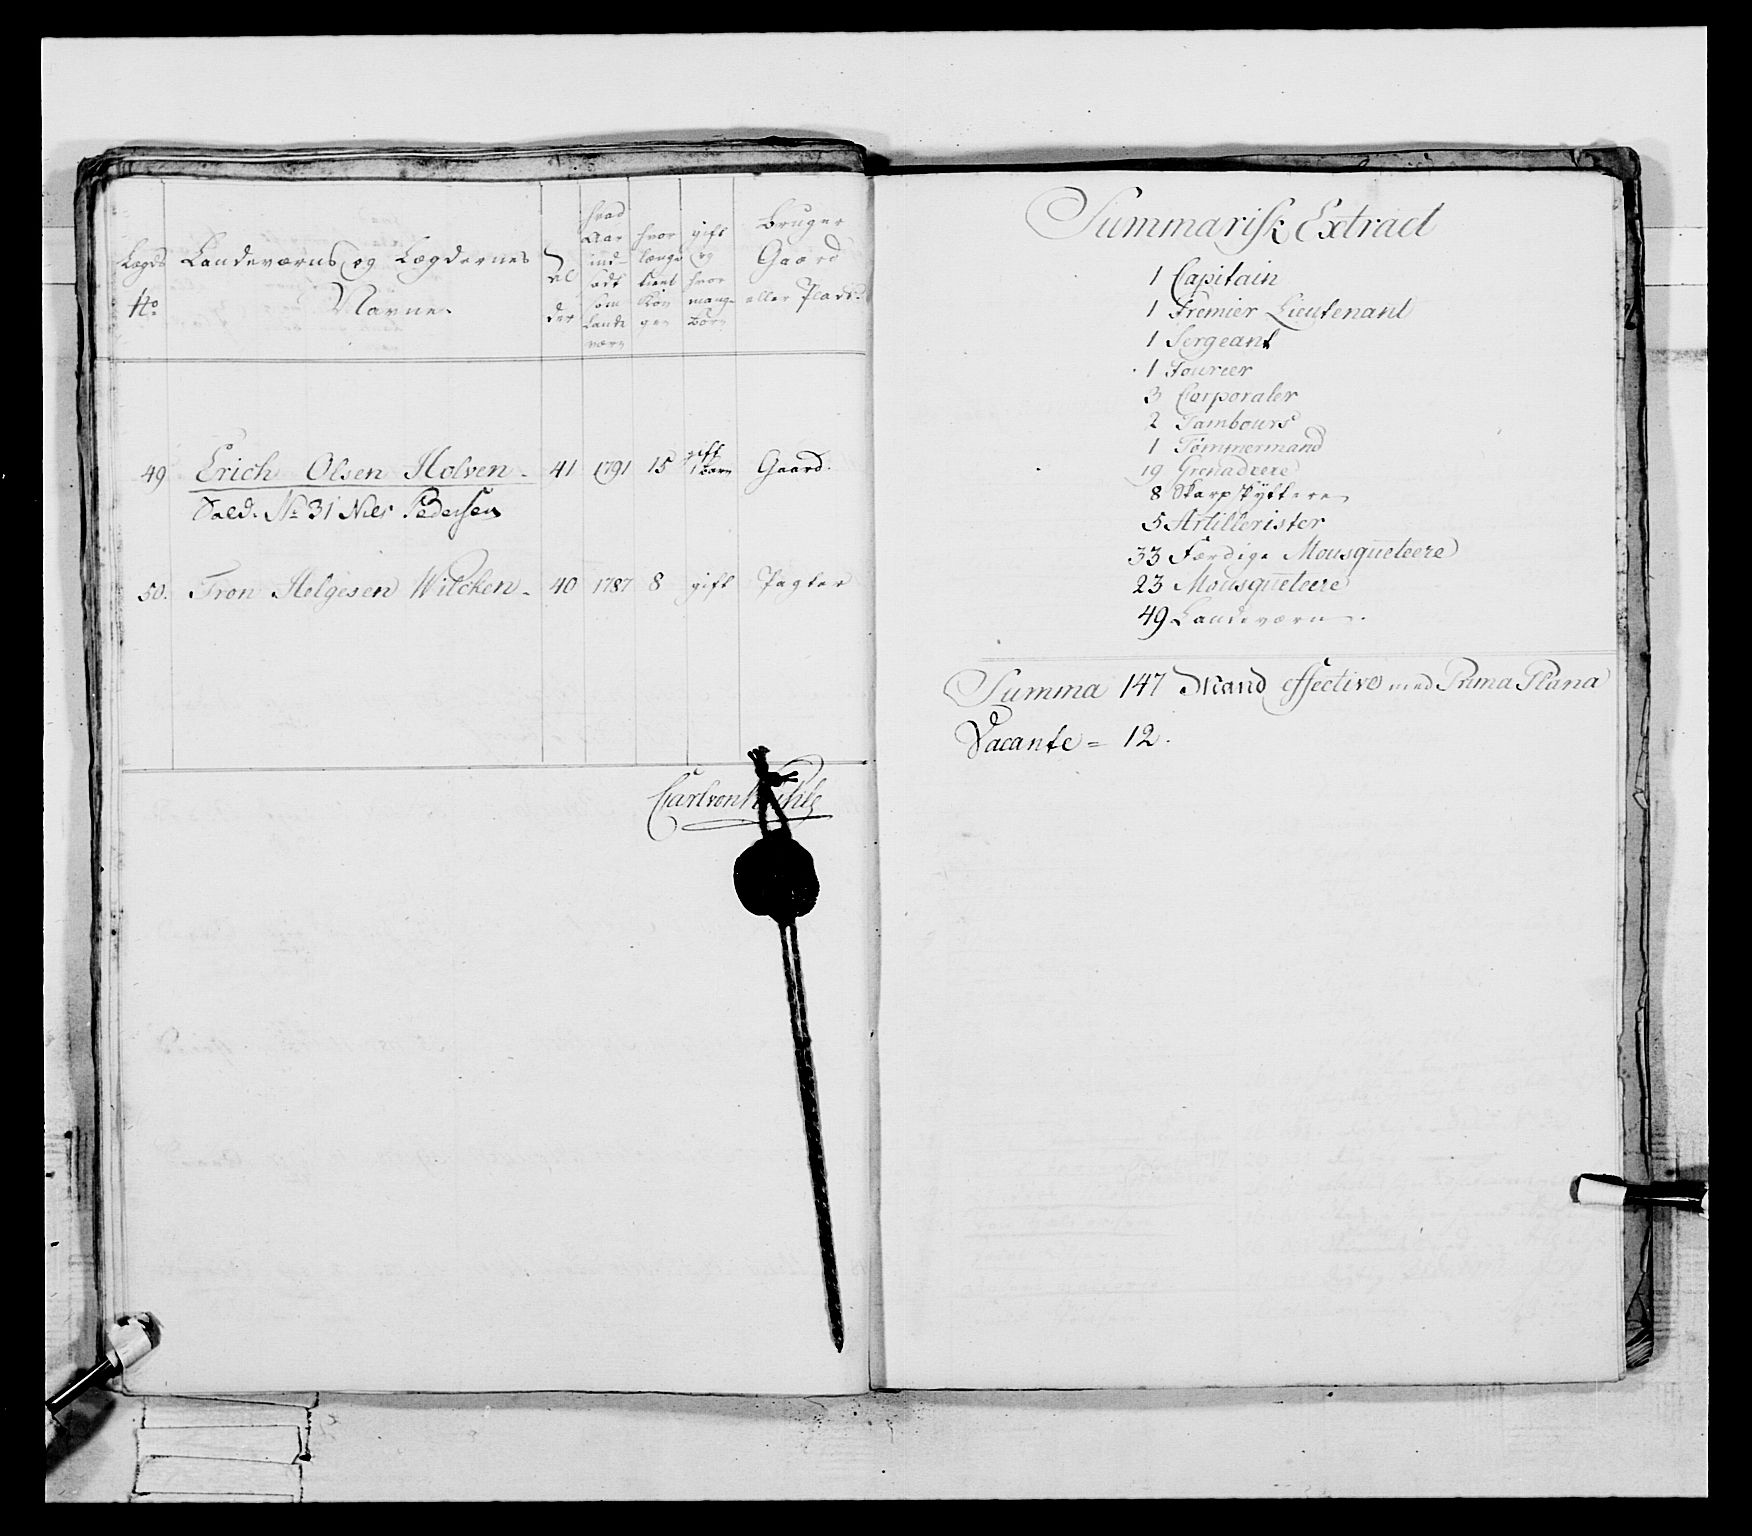 Lægds
No
Landeværns og Lægdernes
Navne.
Al
der
hvad
Aar
ind-
som
Lande
værn
hvor
længe
tient
Kon
gen
gift
og
hvor
mange
Børn
Bruger
Gaard
eller Plads.
49 Erich Olsen Holven - 41 1791 15 gift 1 Barn Gaard.
Sold. No 31 Niels Pedersen
50. Tron Helgesen Wilcken - 40 1787 8 gift Pagter
Carl von
Summarisk Extract
1 Capitain
1 Premier Lieutenant
1 Sergeant
1 Fourier
3 Corporaler
2 Tambours
1 Tømmermand
19 Grenadeere
8 Skarpskyttere
5 Artillerister
33 Færdige Mousqueteere
23 Mousqueteere
49 Landeværn.
Summa 147 Mand effective med Prima Plana
Vacante = 12.